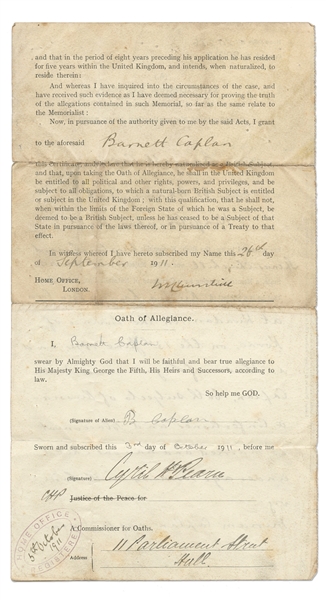 and that in the period of eight years preceding his application he has resided
for five years within the United Kingdom, and intends, when naturalized, to
reside therein:
And whereas I have inquired into the circumstances of the case, and
have received such evidence as I have deemed necessary for proving the truth
of the allegations contained in such Memorial, so far as the same relate to
the Memorialist:
Now, in pursuance of the authority given to me by the said Acts, I grant
to the aforesaid Barnett Caplan
this Certificate, and
and that, upon taking the Oath of Allegiance, he shall in the United Kingdom
be entitled to all political and other rights, powers, and privileges, and be
subject to all obligations, to which a natural-born British Subject is entitled
or subject in the United Kingdom; with this qualification, that he shall not,
when within the limits of the Foreign State of which he was a Subject, be
deemed to be a British Subject, unless he has ceased to be a Subject of that
State in pursuance of the laws thereof, or in pursuance of a Treaty to that
effect.
In witness whereof I have hereto subscribed my Name this 26th day
of September 1911.
HOME OFFICE,
LONDON.
Oath of Allegiance.
I, Barnett Caplan
swear by Almighty God that I will be faithful and bear true allegiance to
His Majesty King George the Fifth, His Heirs and Successors, according to
law.
So help me GOD.
(Signature of Alien) B Caplan
Sworn and subscribed this 3rd day of October 1911, before me
(Signature) Cyril
Justice of the Peace for
A Commissioner for Oaths.
Address 11 Parliament Street
Hull
HOME OFFICE
October
1911
REGISTERED